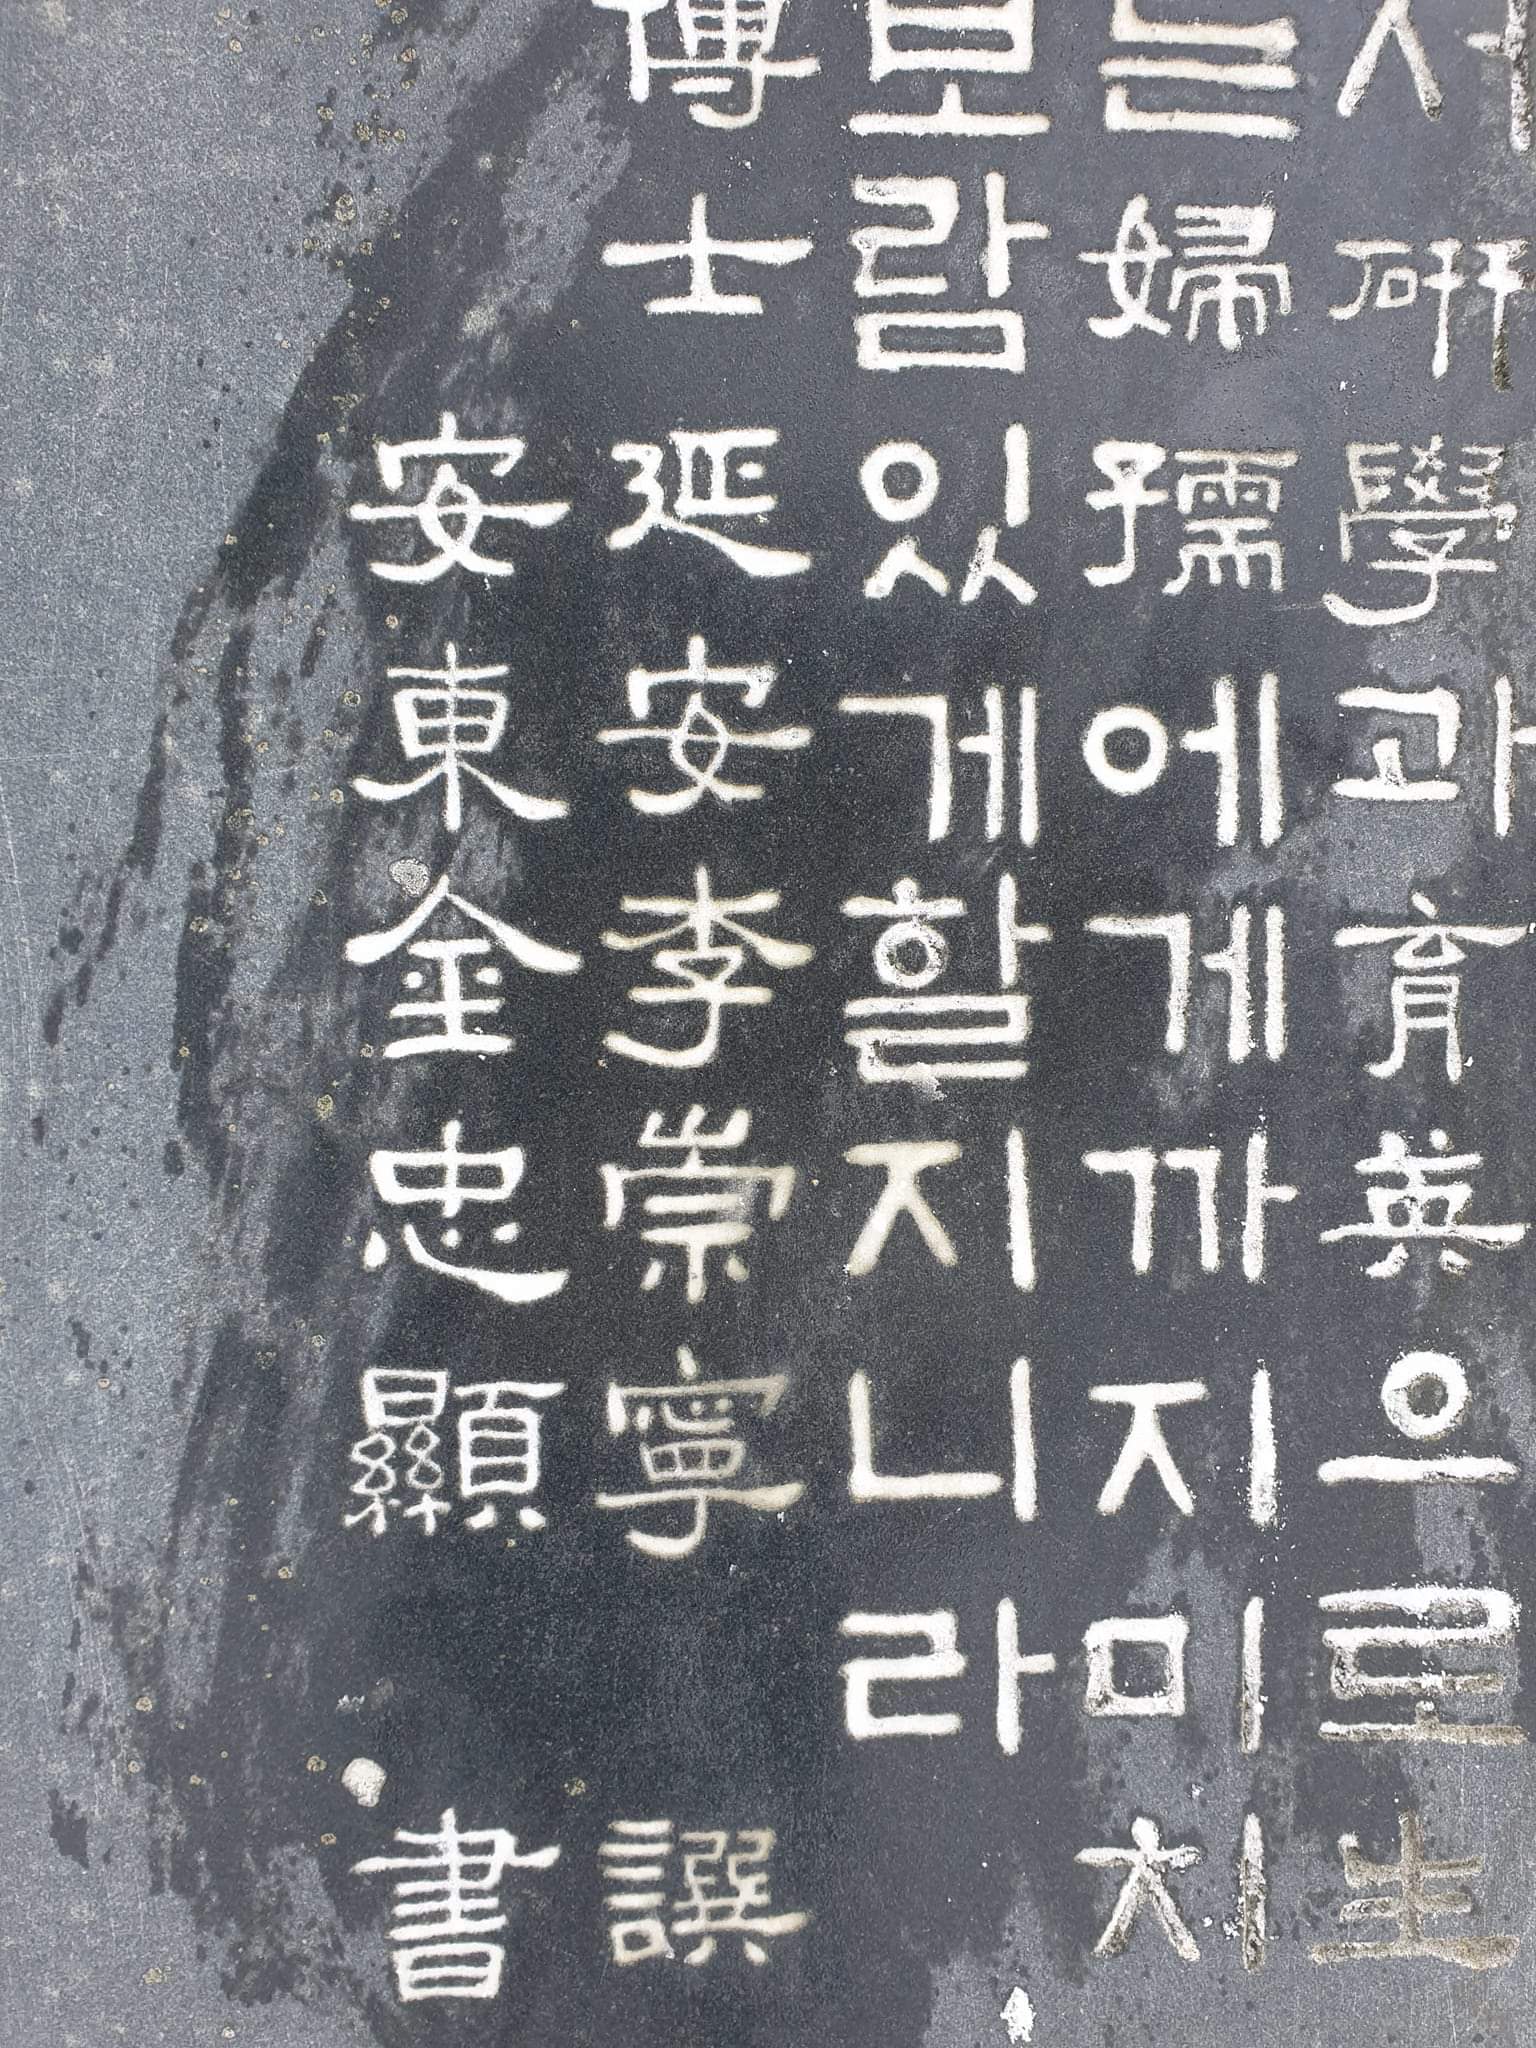 서硏學과育英으로生
는婦孺에게까지미치
보람있게할지니라
博士 延安李崇寧 譔
安東金忠顯 書